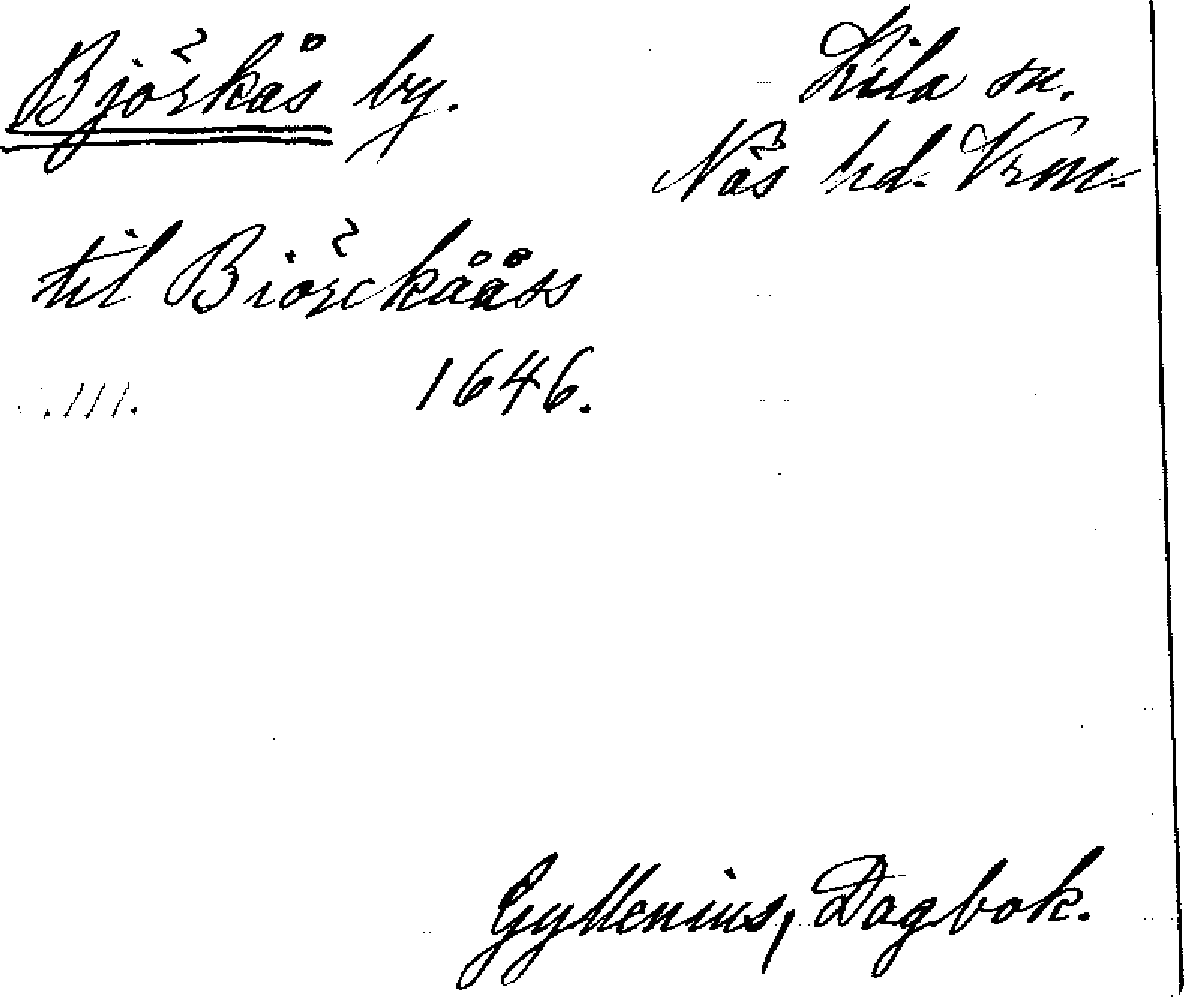 Björkås by.
Kila sn.
Näs hd. Vrm.
til Biörckååss
1646.
Gyllenius, Dagbok.